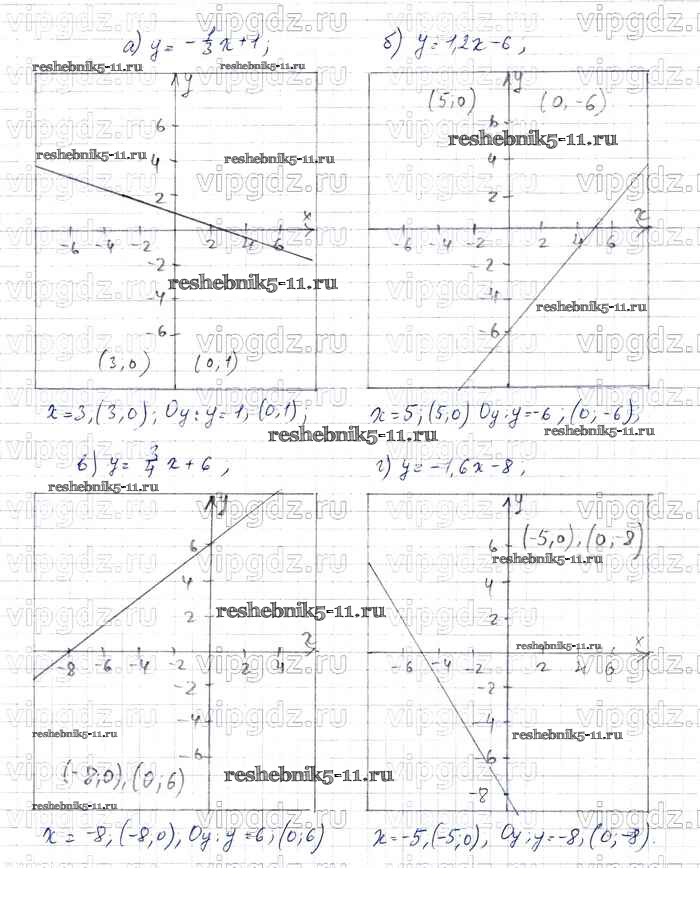 а) y = -1/3 x+1;
б) y = 1,2x-6;
reshebnik5-11.ru
reshebnik5-11.ru
y
6
4
2
-6 -4 -2 2 4 6 x
-2
-4
-6
(3,0) (0,1)
reshebnik5-11.ru
reshebnik5-11.ru
reshebnik5-11.ru
(5,0) y (0,-6)
6
4
2
-6 -4 -2 2 4 6 x
-2
-4
-6
reshebnik5-11.ru
reshebnik5-11.ru
x=3, (3,0); Oy: y=1, (0,1);
x=5; (5,0) Oy: y=-6; (0,-6);
reshebnik5-11.ru
reshebnik5-11.ru
в) y = 3/4 x+6,
г) y = -1,6x-8,
reshebnik5-11.ru
y
6
4
2
-8 -6 -4 -2 2 4 x
-2
-4
-6
(-8,0), (0,6)
reshebnik5-11.ru
reshebnik5-11.ru
reshebnik5-11.ru
reshebnik5-11.ru
y
6 (-5,0), (0,-8)
4
2
-6 -4 -2 2 4 6 x
-2
-4
-6
-8
reshebnik5-11.ru
reshebnik5-11.ru
reshebnik5-11.ru
x = -8, (-8,0), Oy: y=6; (0;6)
x=-5, (-5;0), Oy: y=-8, (0;-8).
vipgdz.ru